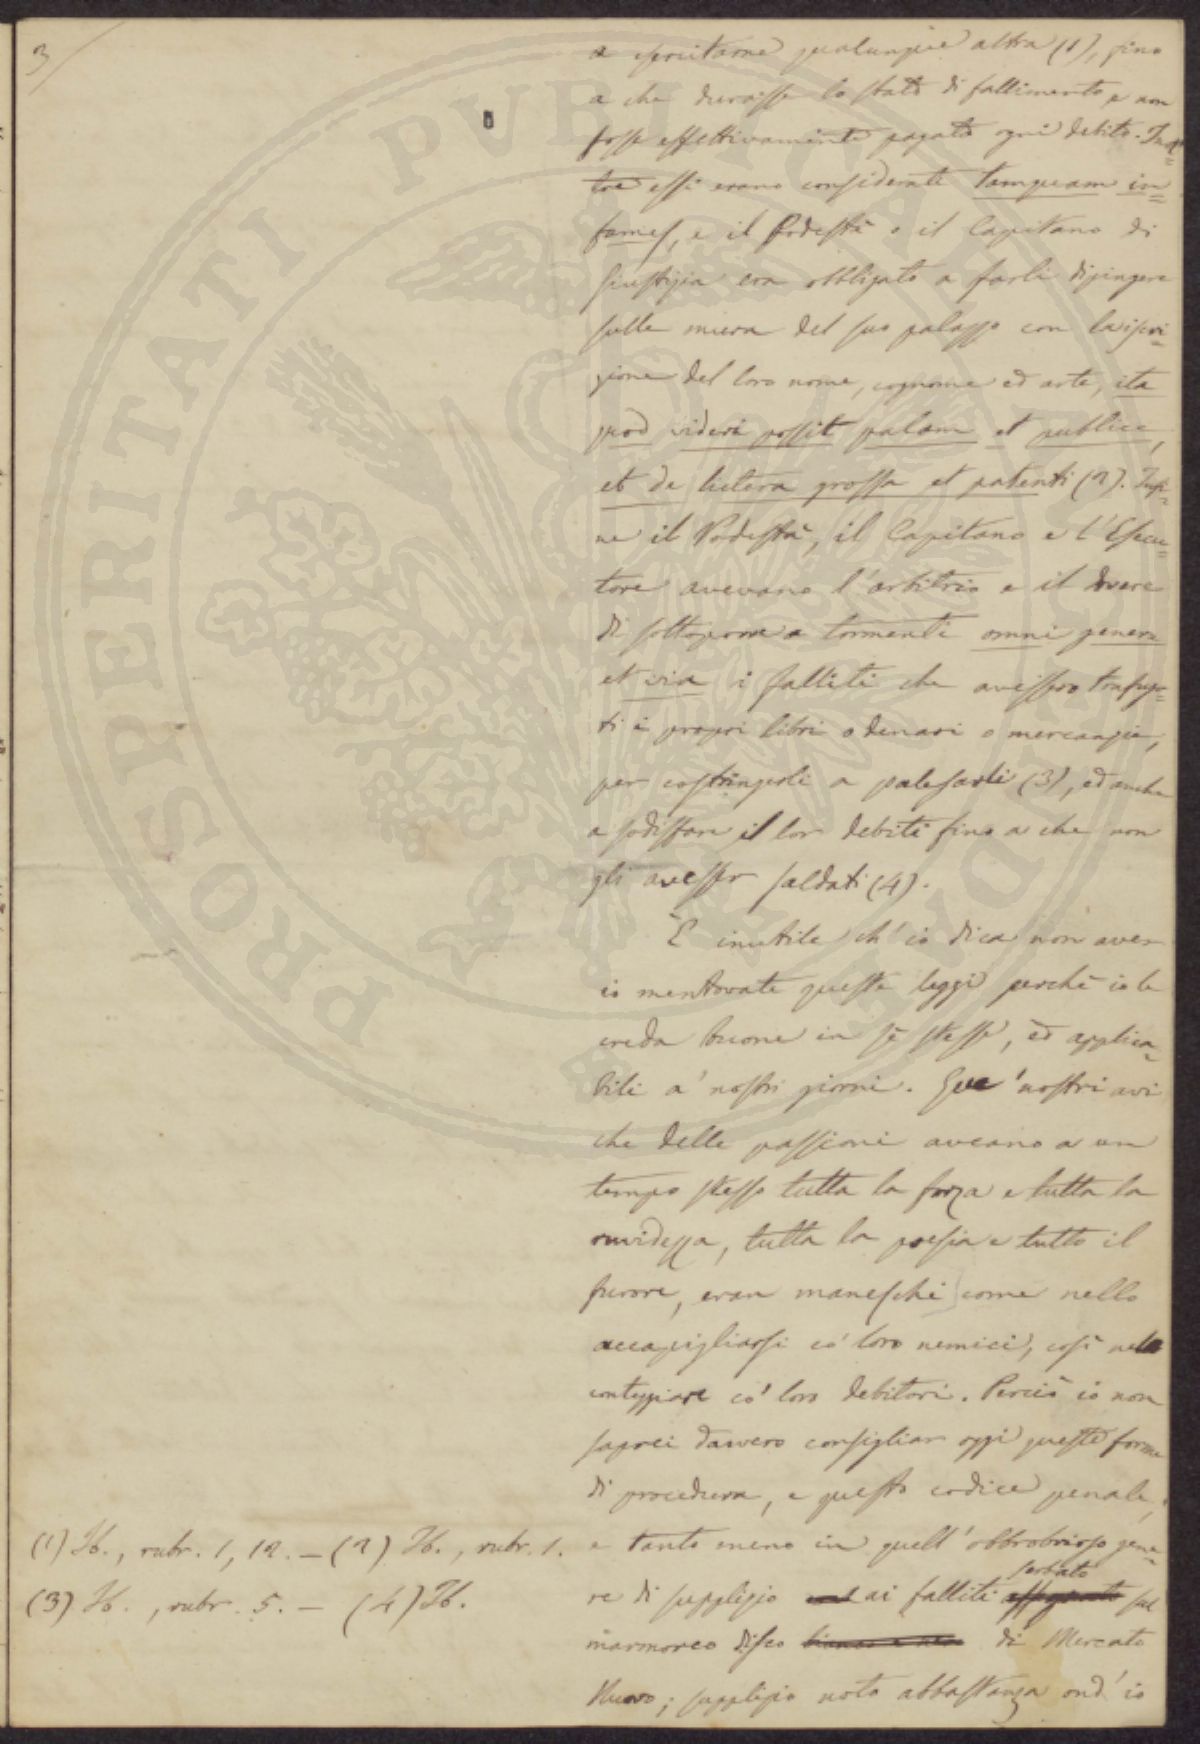 3
a esercitarne qualunque altra (1), fino
a che durasse lo stato di fallimento e non
fosse effettivamente pagato ogni debito. Inol=
tre essi erano considerati tamquam in=
fames, e il Podestà o il Capitano di
giustizia era obbligato a farli dipingere
sulle mura del suo palazzo con la iscri=
zione del loro nome, cognome ed arte, ita
quod videri possit palam et publice,
et de lictera grossa et patenti (2). Infi=
ne il Podestà, il Capitano e l'Esecu=
tore avevano l'arbitrio e il dovere
di sottoporre a tormenti omni genere
et via i falliti che avessero trafuga=
ti i propri libri o denari o mercanzie,
per costringerli a palesarli (3), ed anche
a sodisfare il lor debiti fino a che non
gli avesser saldati (4).
È inutile ch'io dica non aver
io mentovate queste leggi perchè io le
creda buone in sè stesse, ed applica=
bili a' nostri giorni. Que' nostri avi
che delle passioni aveano a un
tempo stesso tutta la forza e tutta la
ruvidezza, tutta la poesia e tutto il
furore, eran maneschi come nello
accapigliarsi co' loro nemici, così nel
conteggiare co' loro debitori. Perciò io non
saprei davvero consigliar oggi queste forme
di procedura, e questo codice penale,
e tanto meno in quell'obbrobrioso gene=
re di supplizio ai falliti serbato sul
marmoreo disco bianco e nero di Mercato
Nuovo; supplizio noto abbastanza ond'io
(1) Ib., rubr. 1, 12. – (2) Ib., rubr. 1.
(3) Ib., rubr. 5. – (4) Ib.
PROSPERITATI PUBLICAE